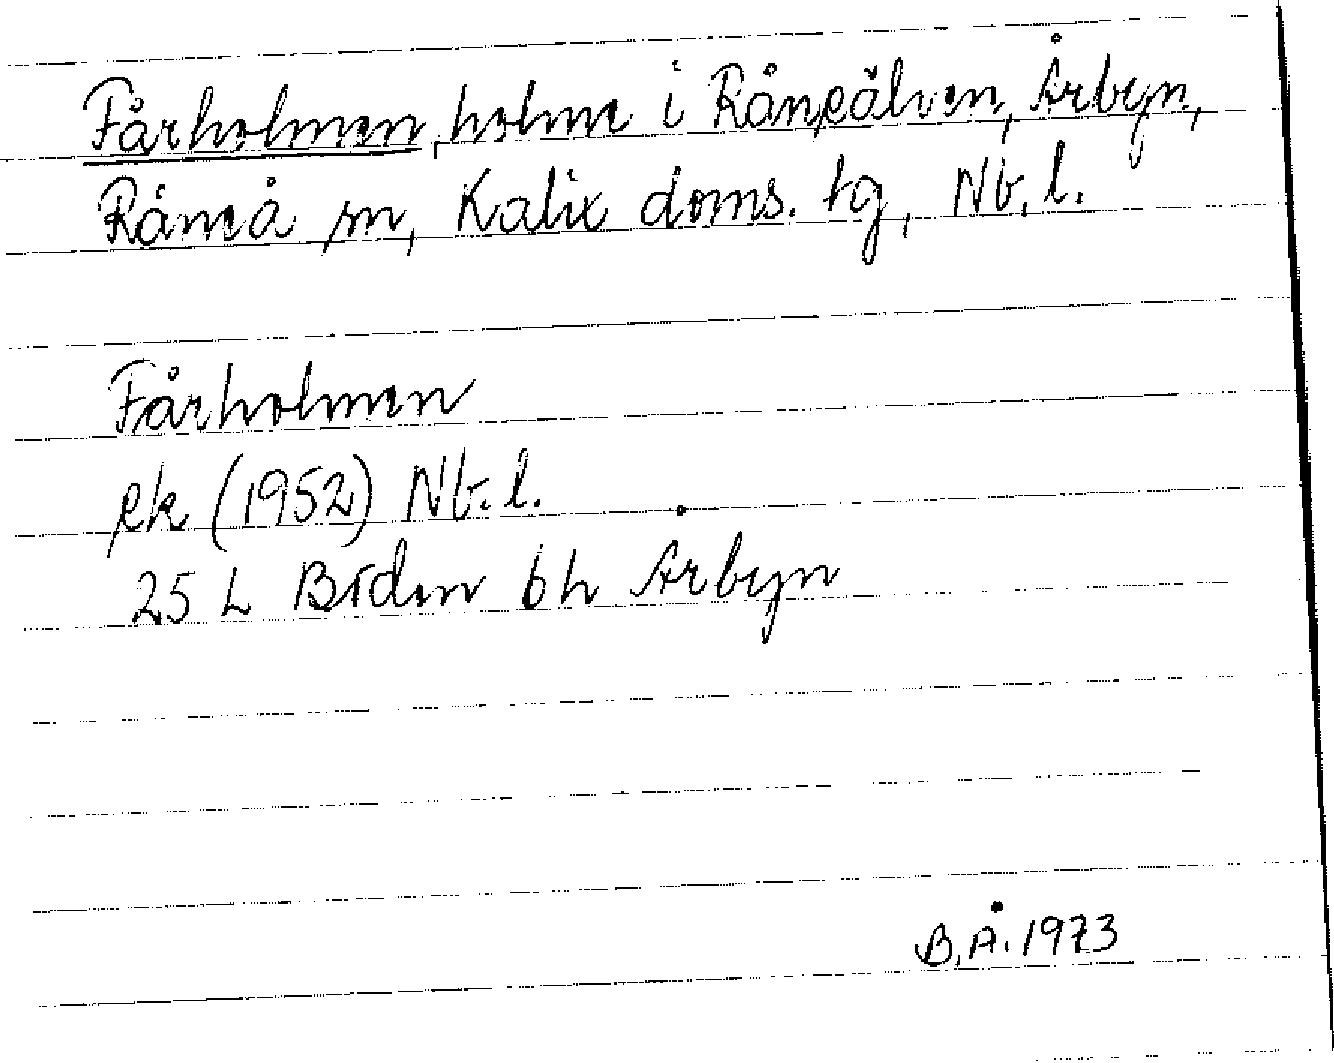 Fårholmen, holme i Råneälven, Årbyn,
Råneå sn, Kalix doms. tg, Nb. l.
Fårholmen
ek (1952) Nb. l.
25 L Boden 6h Årbyn
B.Å. 1973